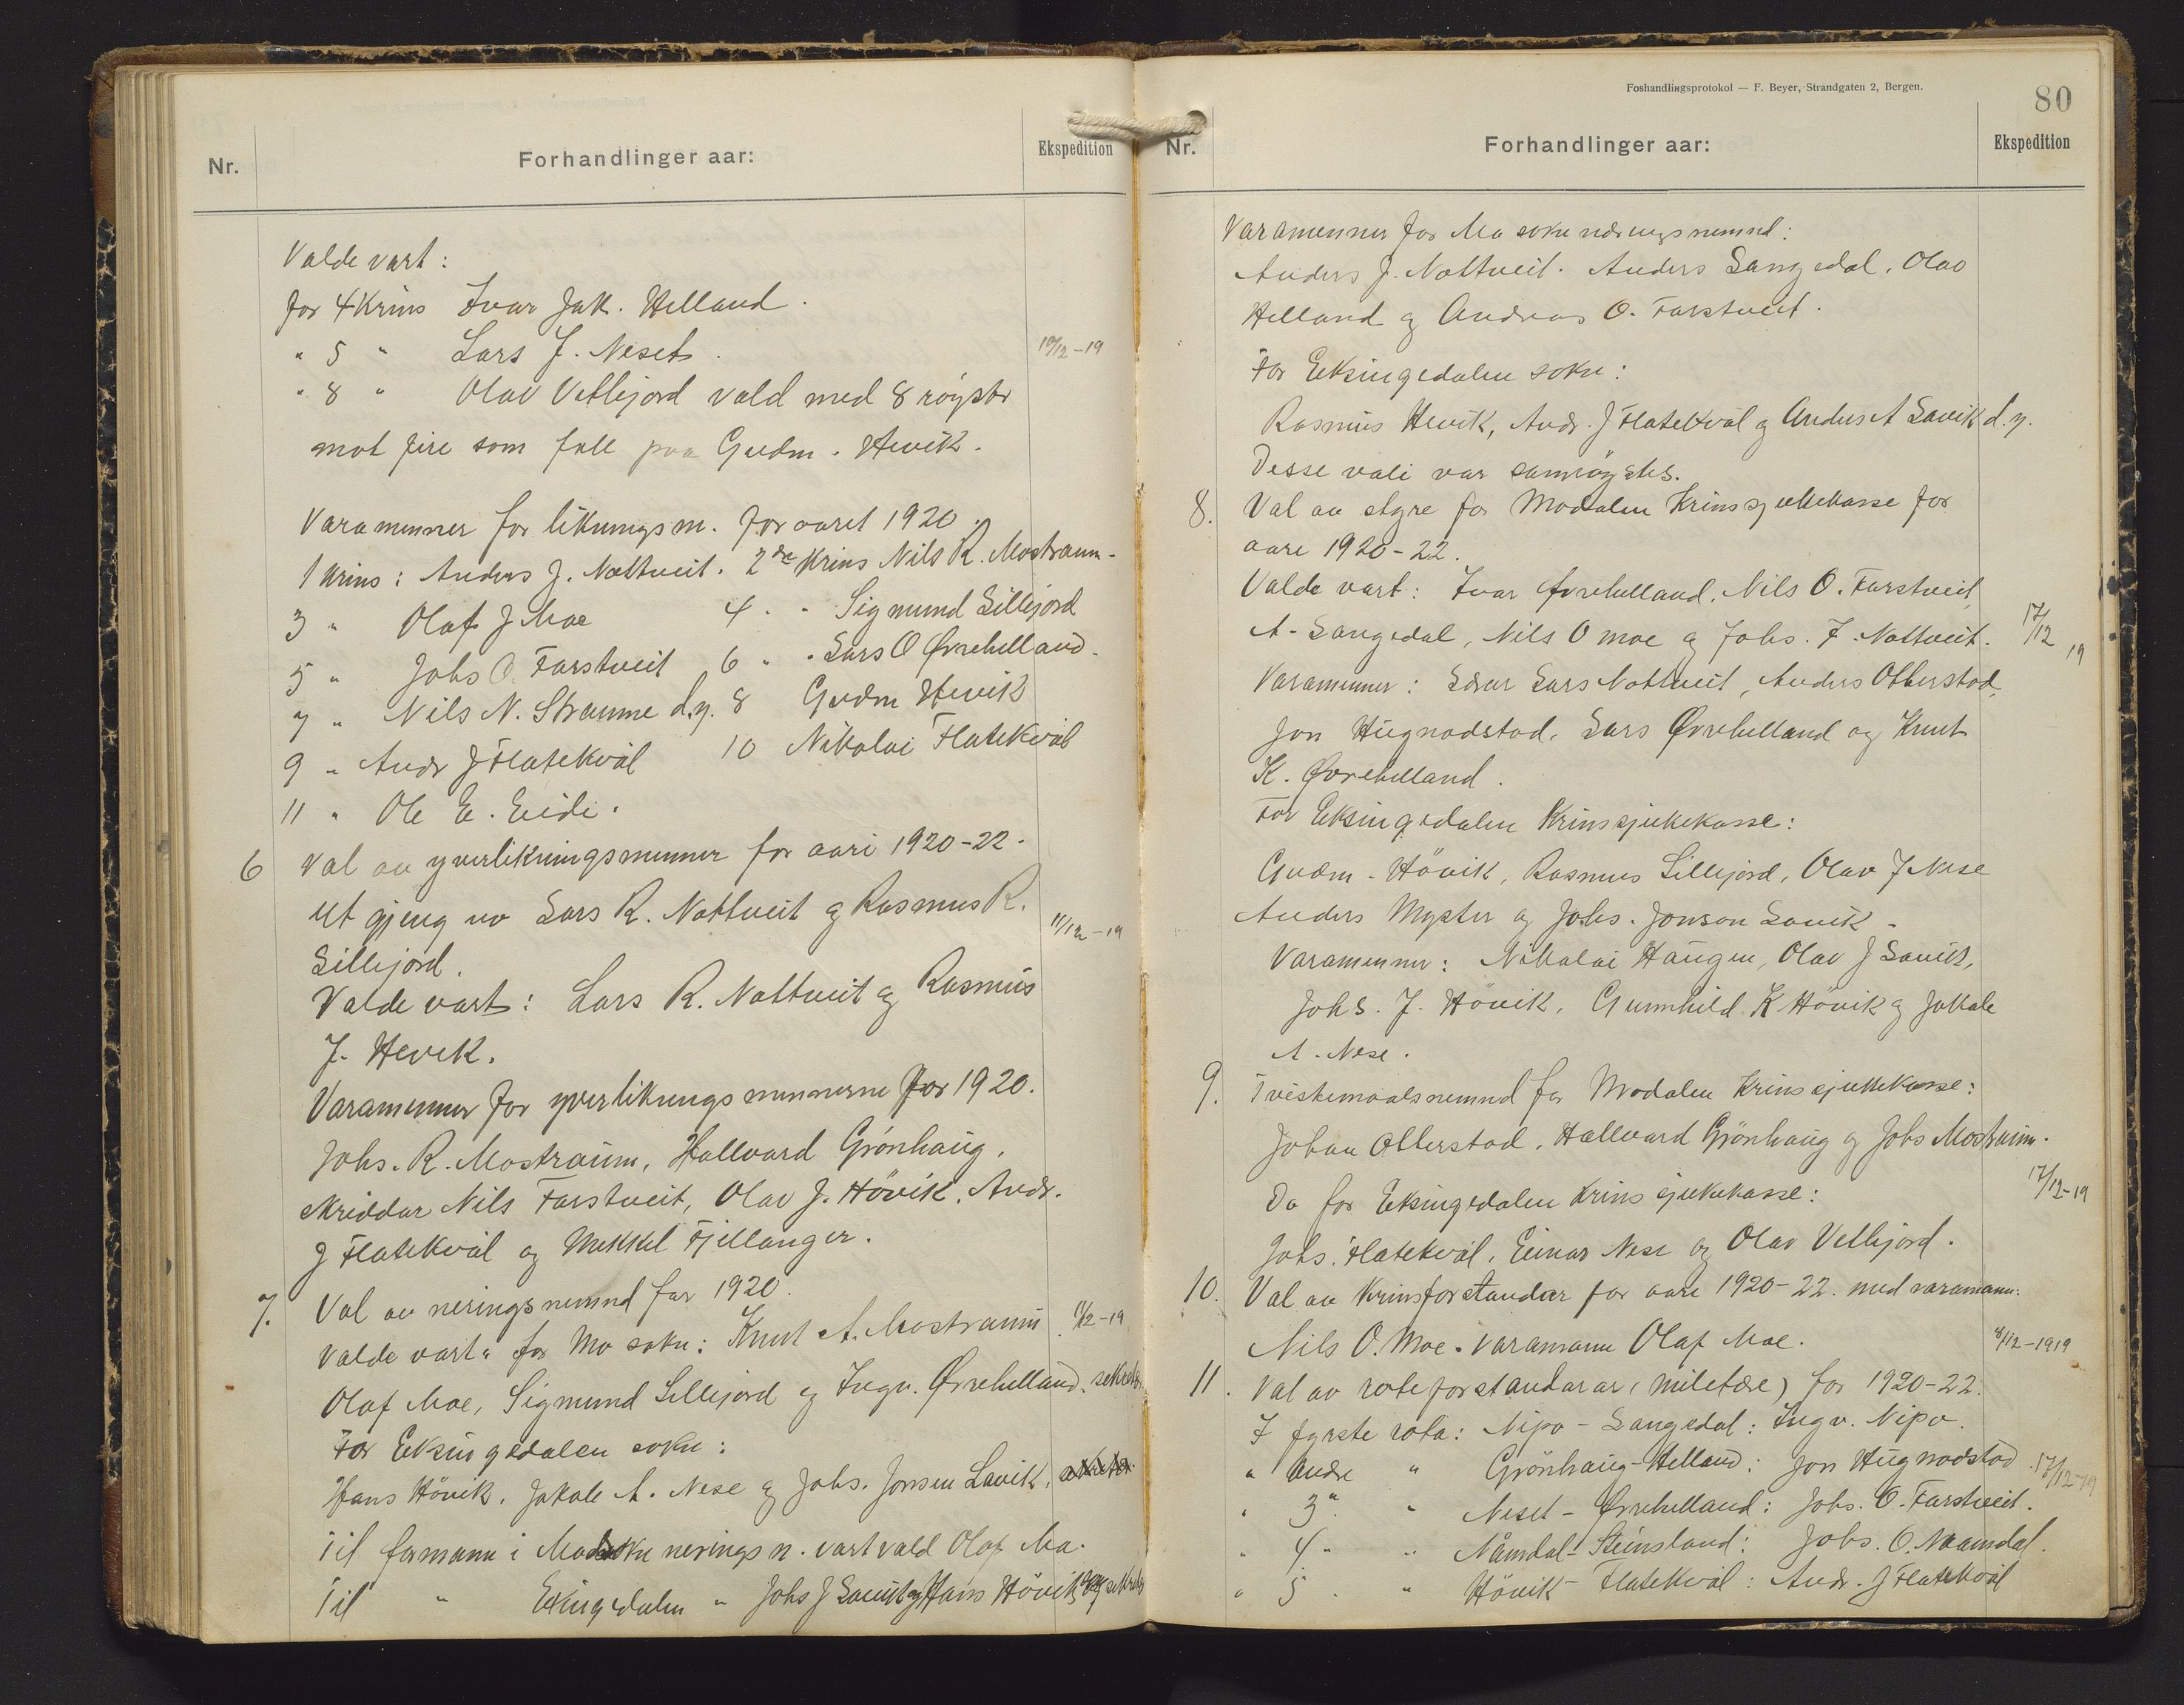 Nr.
Forhandlinger aar:
Ekspedition
Valde vart:
for 4 Krins Ivar Jak. Helland.
" 5 " Lars J. Neset. 10/12-19
" 8 " Olav Vetlejord vald med 8 røyster
mot fire som fall paa Gudm. Hevik.
Varamenner for likningsm. for aaret 1920.
1 Krins: Anders J. Nottveit. 2dre Krins Nils R. Mostraum.
3 " Olaf J Moe 4 " Sigmund Sillejord
5 " Johs O. Farstveit 6 " Lars O Øvrehelland.
7 " Nils N. Straume d.y. 8 Gudm Hevik
9 " Andr J Flatekvål 10 Nikolai Flatekvål
11 " Ole E. Eide.
6 Val av yverlikningsmenner for aari 1920-22.
Ut gjeng no Lars R. Nottveit og Rasmus R.
Sillejord. 11/12-19
Valde vart: Lars R. Nottveit og Rasmus
J. Hevik.
Varamenner for yverlikningsmennerne for 1920.
Johs. R. Mostraum, Hallvard Grönhaug,
skriddar Nils Farstveit, Olav J. Hövik, Andr.
J Flatekvål og Mikkel Fjellanger.
7. Val av neringsnemnd for 1920.
Valde vart: for Mo sokn: Knut A. Mostraum 11/12-19
Olaf Moe, Sigmund Sillejord og Ingv. Øvrehelland. sekretær
For Eksingedalen sokn:
Hans Hövik, Jakole A. Nese og Johs. Jonson Lavik, sekretær
Til formann i Mo sokn nerings n. vart vald Olaf Mo.
Til " Eksingedalen " Johs J Lavik og Hans Hövik sekretær
Foshandlingsprotokol — F. Beyer, Strandgaten 2, Bergen.
80
Nr.
Forhandlinger aar:
Ekspedition
Varamenner for Mo sokn næringsnemnd:
Anders J. Nottveit. Anders Langedal, Olav
Helland og Andreas O. Farstveit.
For Eksingedalen sokn:
Rasmus Hevik, Andr. J Flatekvål og Anders A Lavik d.y.
Desse vali var samrøystes.
8. Val av styre for Modalen Krinssjukekasse for
aare 1920-22.
Valde vart: Ivar Øvrehelland, Nils O. Farstveit,
A. Langedal, Nils O Moe og Johs. J. Nottveit. 17/12 19
Varamenner: Lærar Lars Nottveit, Anders Otterstad,
Jon Hugnodstad, Lars Øvrehelland og Knut
K. Øvrehelland.
For Eksingedalen Krinssjukekasse:
Gudm. Hövik, Rasmus Sillejord, Olav J Nese
Anders Myster og Johs. Jonson Lavik.
Varamenner: Nikolai Haugen, Olav J Lavik,
Johs. J. Hövik, Gunnhild K Hövik og Jakole
A. Nese.
9. Tvistemaalsnemnd for Modalen Krinssjukekasse:
Johan Otterstad, Hallvard Grönhaug og Johs Mostraum.
Do for Eksingedalen Krinssjukekasse: 17/12-19
Johs. Flatekvål, Einar Nese og Olav Vetlejord.
10. Val av Krinsforstandar for aare 1920-22. med varamann:
Nils O. Moe. varamann Olaf Moe. 8/12-1919
11. Val av roteforstandarar (miletære) for 1920-22.
I fyrste rota: Nipo - Langedal: Ingv. Nipo.
" Andre " Grönhaug-Helland: Jon Hugnodstad. 17/12-19
" 3" " Neset - Øvrehelland: Johs. O. Farstveit.
" 4 " " Nåmdal-Steinsland: Johs. O. Naamdal.
" 5 " " Hövik - Flatekvål: Andr. J Flatekvål